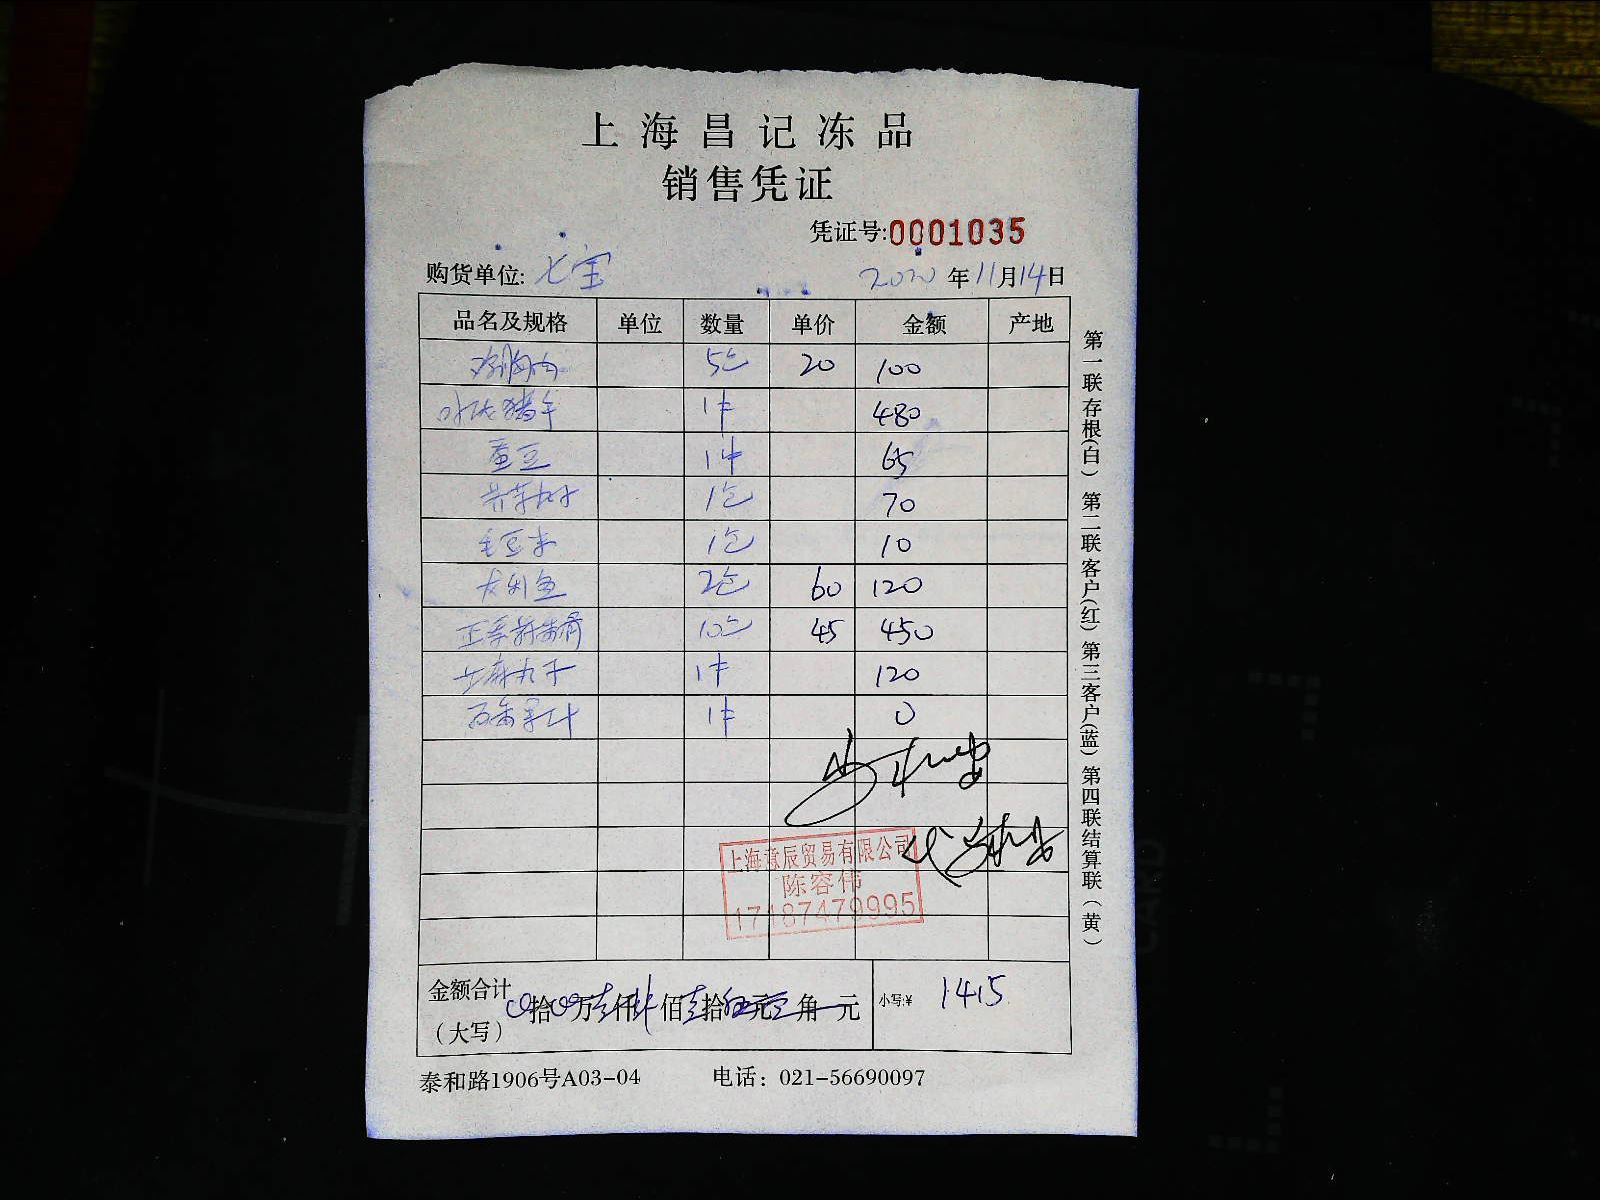 上海昌记冻品
销售凭证
凭证号:0001035
购货单位: 七宝 2020年11月14日
品名及规格 单位 数量 单价 金额 产地
鸡胸肉 5包 20 100
1件 480
蚕豆 1件 65
荠菜丸子 1包 70
毛豆米 1包 10
2包 60 120
10包 45 450
丸子 1件 120
1件 0
上海意辰贸易有限公司
陈容伟
17187479995
金额合计
(大写) 拾 万 壹 仟 肆 佰 壹 拾 伍 元 角 元 小写:¥ 1415
泰和路1906号A03-04 电话：021-56690097
第一联存根(白) 第二联客户(红) 第三客户(蓝) 第四联结算联(黄)